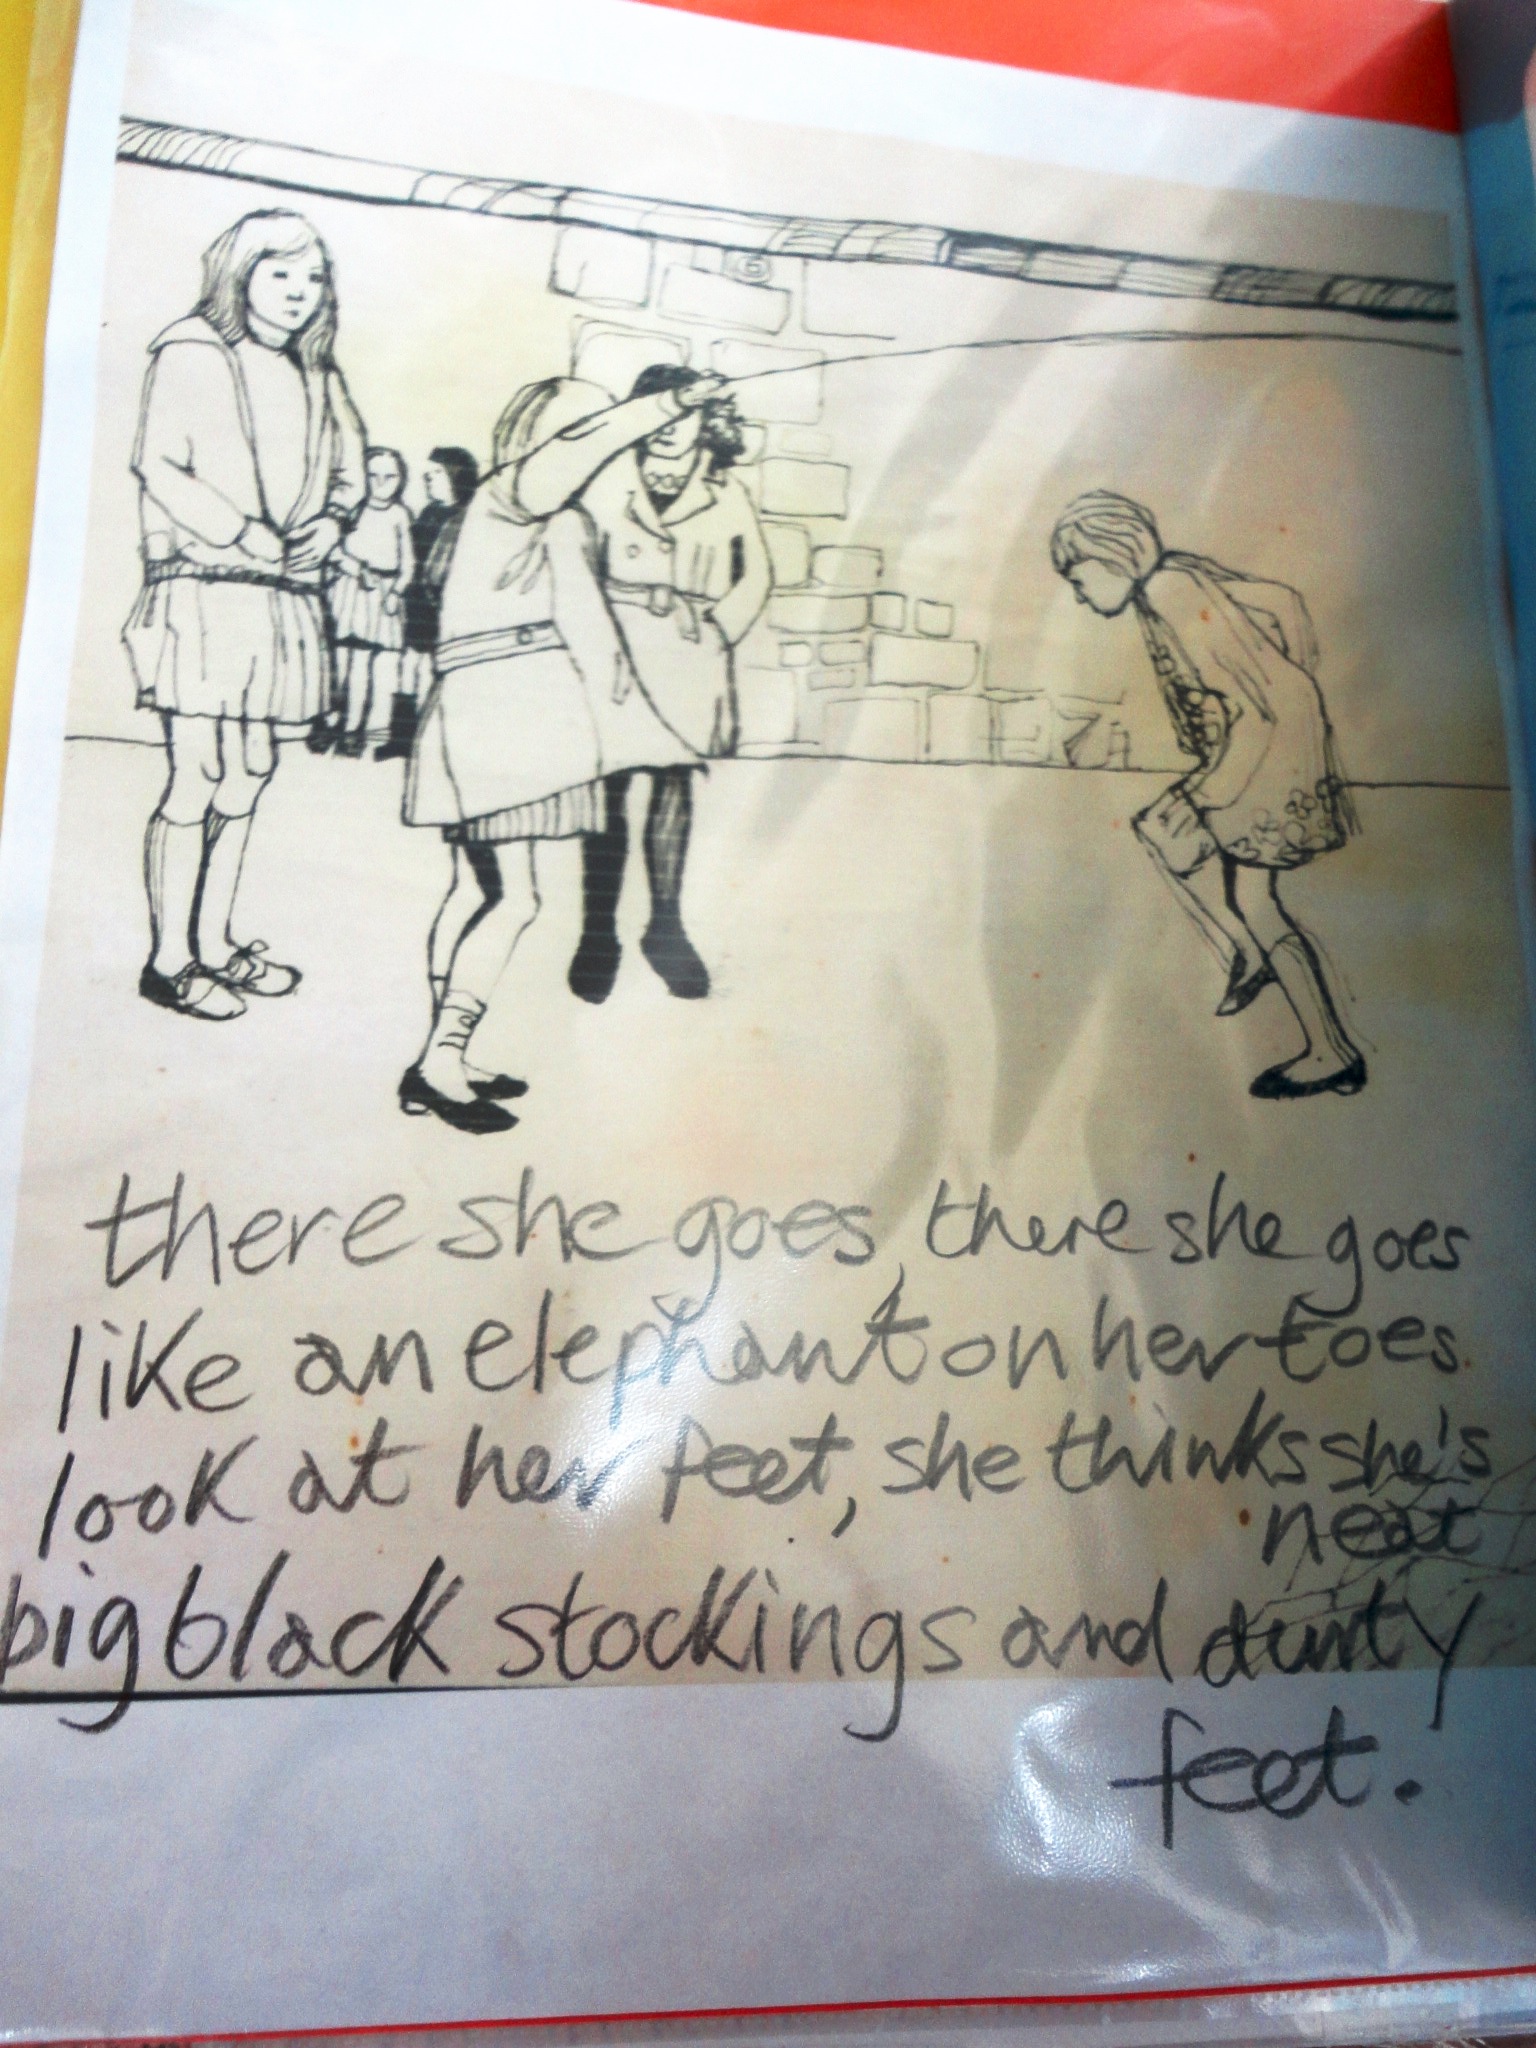 there she goes, there she goes
like an elephant on her toes.
look at her feet, she thinks she's
neat
big black stockings and dirty
feet.